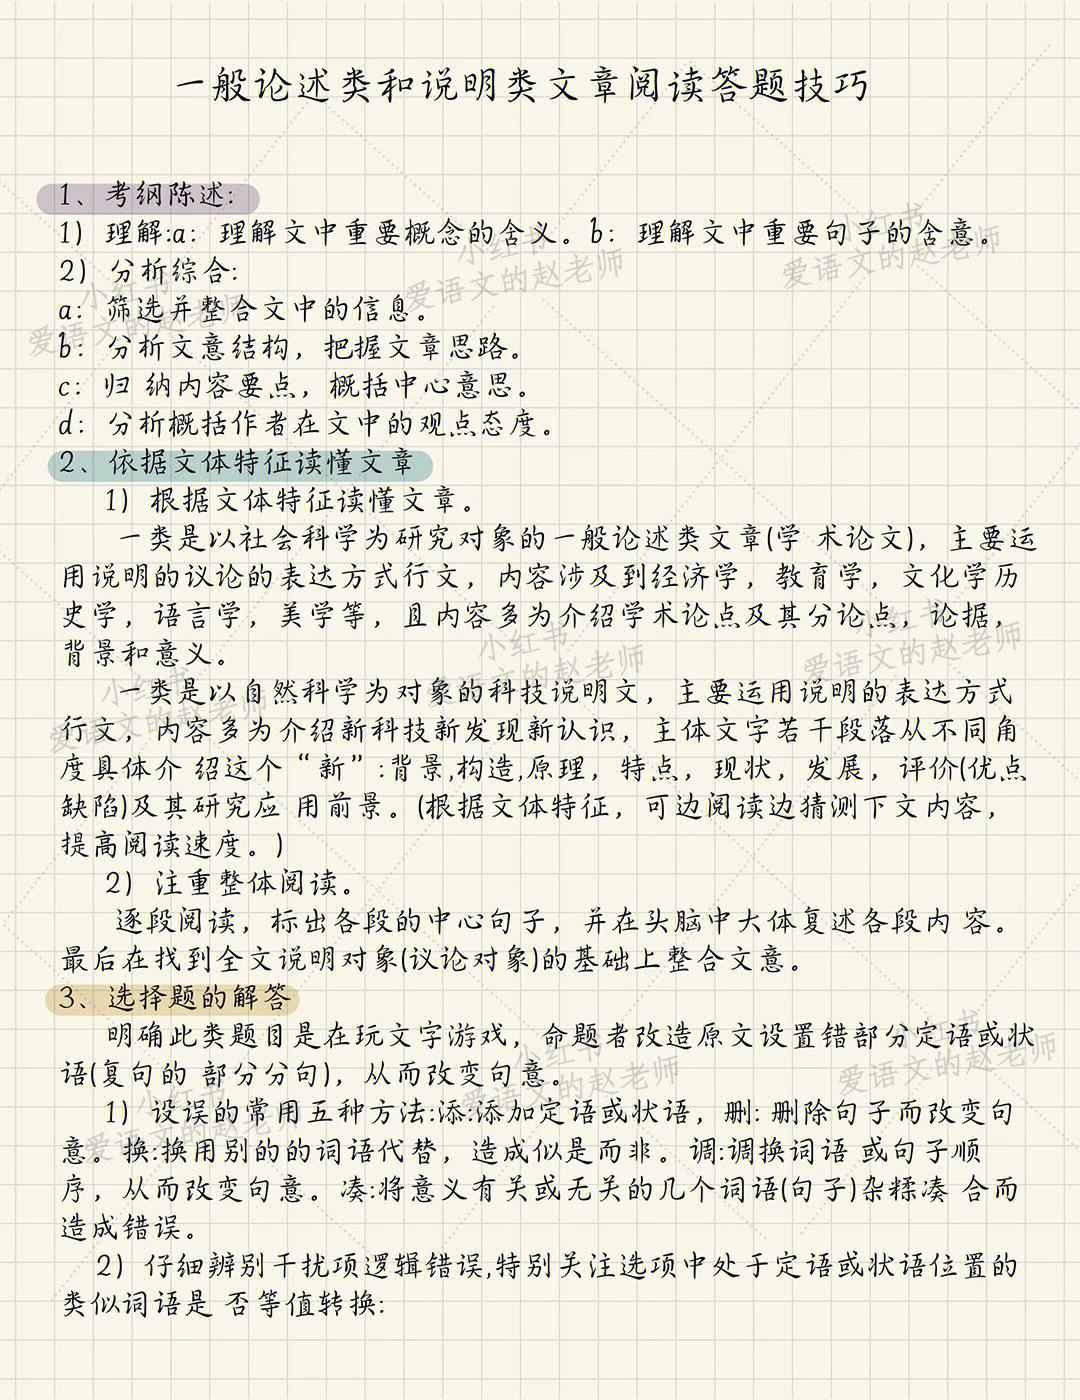 一般论述类和说明类文章阅读答题技巧
1、考纲陈述:
1) 理解:a: 理解文中重要概念的含义。b: 理解文中重要句子的含意。
2) 分析综合:
a: 筛选并整合文中的信息。
b: 分析文意结构，把握文章思路。
c: 归 纳内容要点，概括中心意思。
d: 分析概括作者在文中的观点态度。
2、依据文体特征读懂文章
1) 根据文体特征读懂文章。
一类是以社会科学为研究对象的一般论述类文章(学 术论文)，主要运
用说明的议论的表达方式行文，内容涉及到经济学，教育学，文化学历
史学，语言学，美学等，且内容多为介绍学术论点及其分论点，论据，
背景和意义。
一类是以自然科学为对象的科技说明文，主要运用说明的表达方式
行文，内容多为介绍新科技新发现新认识，主体文字若干段落从不同角
度具体介 绍这个“新”:背景,构造,原理，特点，现状，发展，评价(优点
缺陷)及其研究应 用前景。(根据文体特征，可边阅读边猜测下文内容，
提高阅读速度。)
2) 注重整体阅读。
逐段阅读，标出各段的中心句子，并在头脑中大体复述各段内 容。
最后在找到全文说明对象(议论对象)的基础上整合文意。
3、选择题的解答
明确此类题目是在玩文字游戏，命题者改造原文设置错部分定语或状
语(复句的 部分分句)，从而改变句意。
1) 设误的常用五种方法:添:添加定语或状语，删: 删除句子而改变句
意。换:换用别的的词语代替，造成似是而非。调:调换词语 或句子顺
序，从而改变句意。凑:将意义有关或无关的几个词语(句子)杂糅凑 合而
造成错误。
2) 仔细辨别干扰项逻辑错误,特别关注选项中处于定语或状语位置的
类似词语是 否等值转换:
小红书
爱语文的赵老师
小红书
爱语文的赵老师
小红书
爱语文的赵老师
小红书
爱语文的赵老师
小红书
爱语文的赵老师
小红书
爱语文的赵老师
小红书
爱语文的赵老师
小红书
爱语文的赵老师
小红书
爱语文的赵老师